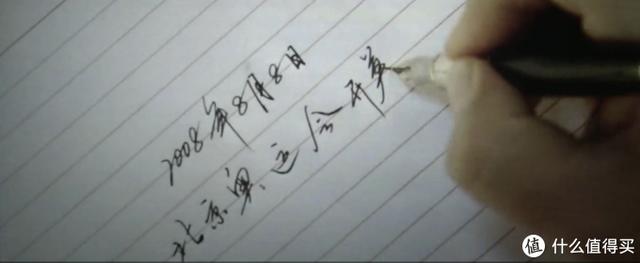 2008年8月8日
北京奥运会开幕
值 什么值得买